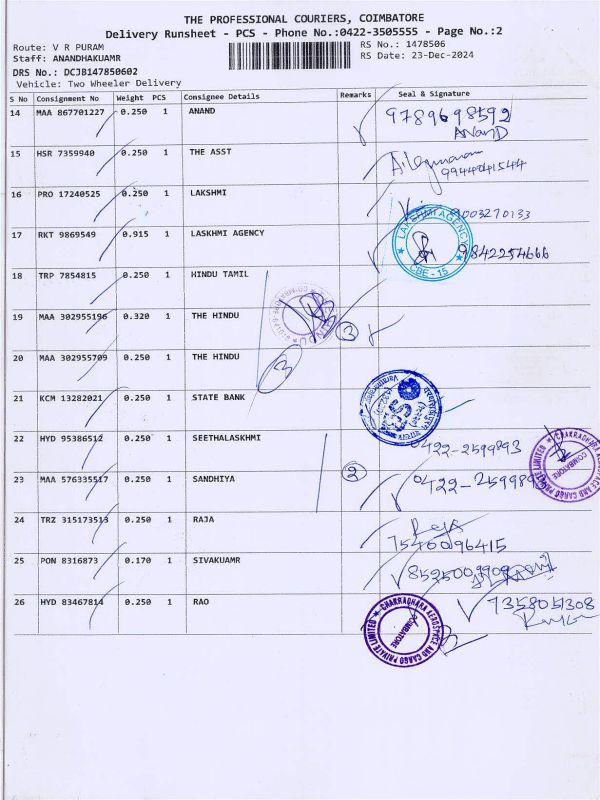 THE PROFESSIONAL COURIERS, COIMBATORE
Delivery Runsheet - PCS - Phone No.:0422-3505555 - Page No.:2
Route: V R PURAM RS No.: 1478506
Staff: ANANDHAKUAMR RS Date: 23-Dec-2024
DRS No.: DCJB147850602
Vehicle: Two Wheeler Delivery
S No Consignment No Weight PCS Consignee Details Remarks Seal & Signature
14 MAA 867701227 0.250 1 ANAND 9789698592
ANAND
15 HSR 7359940 0.250 1 THE ASST
9944041544
16 PRO 17240525 0.250 1 LAKSHMI 9003270133
LAKSHMI AGENCY
17 RKT 9869549 0.915 1 LASKHMI AGENCY 9842254666
CBE - 15
18 TRP 7854815 0.250 1 HINDU TAMIL
19 MAA 302955196 0.320 1 THE HINDU 3
20 MAA 302955709 0.250 1 THE HINDU 3
21 KCM 13282021 0.250 1 STATE BANK
22 HYD 95386512 0.250 1 SEETHALASKHMI 0422-2599893
23 MAA 576335517 0.250 1 SANDHIYA 2 0422-2599893
CHAKRADHARA AEROSPACE AND CARGO PRIVATE LIMITED
COIMBATORE
24 TRZ 315173513 0.250 1 RAJA Raja
7540096415
25 PON 8316873 0.170 1 SIVAKUAMR 8525009909
26 HYD 83467814 0.250 1 RAO 7358051308
CHAKRADHARA AEROSPACE AND CARGO PRIVATE LIMITED
COIMBATORE